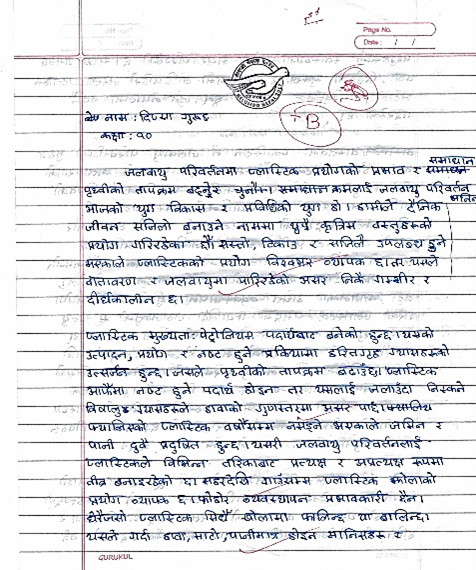 Page No.
Date: / /
B
नाम : दिपसा गुरुङ
कक्षा : १०
समाधान
जलवायु परिवर्तनमा प्लास्टिक प्रयोगको प्रभाव र
पृथ्वीको तापक्रम बढ्नुर क्रमलाई जलवायु परिवर्तन
भनिन्छ
आजको युग विकास र प्रविधिको युग हो। हामीले दैनिक
जीवन सजिलो बनाउने नाममा थुप्रै कृत्रिम वस्तुहरुको
प्रयोग गरिरहेका छौं सस्तो, टिकाउ र सजिलै उपलब्ध हुने
भएकाले प्लास्टिकको प्रयोग विश्वभर व्यापक छ। तर यसले
वातावरण र जलवायुमा पारिरहेको असर निकै गम्भीर र
दीर्घकालीन छ।
प्लास्टिक मुख्यतः पेट्रोलियम पदार्थबाट बनेको हुन्छ। यसको
उत्पादन, प्रयोग र नष्ट हुने प्रक्रियामा हरितगृह ग्यासहरुको
उत्सर्जन हुन्छ। जसले पृथ्वीको तापक्रम बढाउँछ। प्लास्टिक
आफैमा नष्ट हुने पदार्थ होइन तर यसलाई जलाउँदा निस्कने
विषालु ग्यासहरुले हावाको गुणस्तरमा असर पार्छ।
फ्यालिएको प्लास्टिक वर्षौंसम्म नसड्ने भएकाले जमिन र
पानी दुवै प्रदुषित हुन्छ। यसरी जलवायु परिवर्तनलाई
प्लास्टिकले विभिन्न तरिकाबाट प्रत्यक्ष र अप्रत्यक्ष रूपमा
तीव्र बनाइरहेको छ। सहरदेखि गाउँसम्म प्लास्टिक झोलाको
प्रयोग व्यापक छ। फोहोर व्यवस्थापन प्रभावकारी छैन।
धेरैजसो प्लास्टिक सिधै खोलामा फालिन्छ वा जालिन्छ।
यसले गर्दा हावा, माटो, पानीमात्र होइन मानिसहरु र
GURUKUL